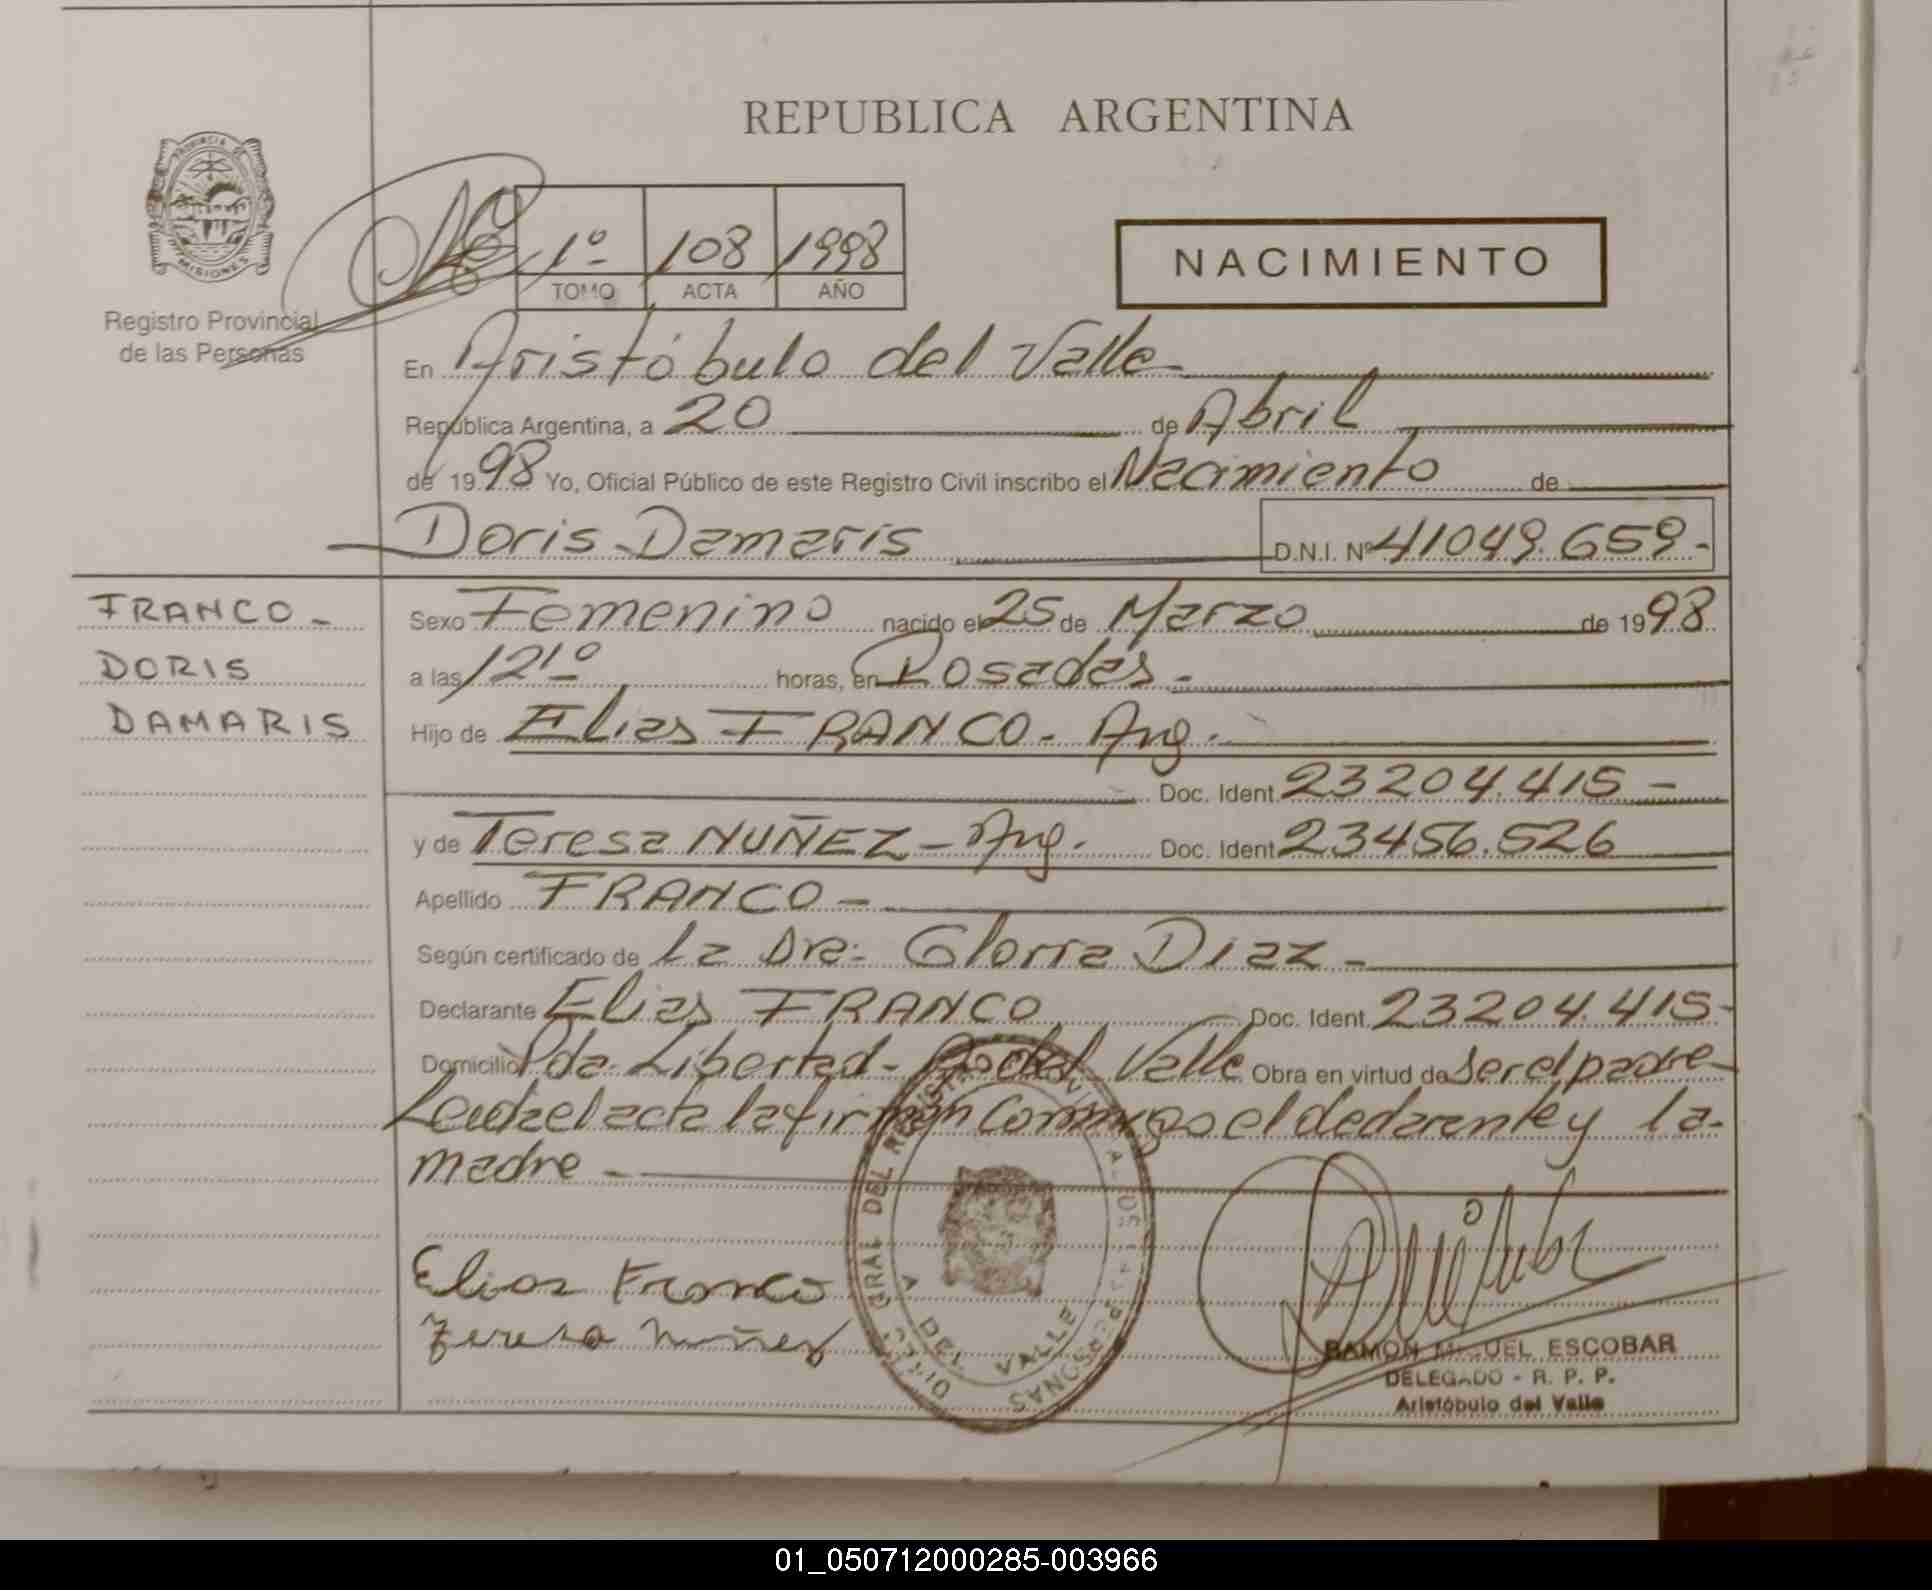 REPUBLICA ARGENTINA
PROVINCIA DE
MISIONES
Registro Provincial
de las Personas
1º 108 1998
TOMO ACTA AÑO
NACIMIENTO
En Aristóbulo del Valle
República Argentina, a 20 de Abril
de 1998 Yo, Oficial Público de este Registro Civil inscribo el Nacimiento de
Doris Damaris D.N.I. Nº 41049.659-
FRANCO-
DORIS
DAMARIS
Sexo Femenino nacido el 25 de Marzo de 1998
a las 12¹⁰ horas, en Posadas-
Hijo de Elias FRANCO- Arg.
Doc. Ident. 23204.415-
y de Teresa NUÑEZ- Arg. Doc. Ident. 23456.526
Apellido FRANCO-
Según certificado de La Dra: Gloria Diaz-
Declarante Elias FRANCO Doc. Ident. 23204.415-
Domicilio Pda. Libertad- del Valle Obra en virtud de ser el padre-
Leida el acta la firman conmigo el declarante y la-
madre-
Elias Franco
Teresa Nuñez
DIRECC. GRAL. DEL REGISTRO PROVINCIAL DE LAS PERSONAS
A. DEL VALLE
RAMON MIGUEL ESCOBAR
DELEGADO - R. P. P.
Aristóbulo del Valle
01_050712000285-003966